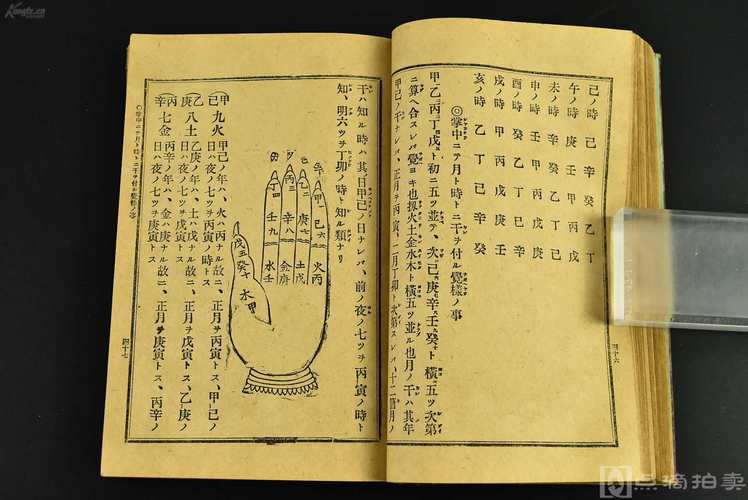 巳ノ時 己 辛 癸 乙 丁
午ノ時 庚 壬 甲 丙 戊
未ノ時 辛 癸 乙 丁 己
申ノ時 壬 甲 丙 戊 庚
酉ノ時 癸 乙 丁 己 辛
戌ノ時 甲 丙 戊 庚 壬
亥ノ時 乙 丁 己 辛 癸
◎掌中ニテ月ト時トニ干ヲ付ル覺樣ノ事
甲乙丙丁戊ト初ニ五ツ並テ、次ニ己庚辛壬癸ト横ニ五ツ次第
ニ算ヘ合スレバ覺ヨキ也扨火土金水木ト横ニ五ツ並ル也月ノ干ハ其年
甲己ノ干ナレバ、正月ヲ丙寅、二月丁卯ト次第スレバ、十二箇月ノ
四十六
干ハ知ル時ハ其日甲己ノ日ナレバ、前ノ夜ノ七ツヲ丙寅ノ時ト
知、明六ツヲ丁卯ノ時ト知ル類ナリ
甲 己六 火丙
乙二 庚七 土戊
丙三 辛八 金庚
丁四 壬九 水壬
戊五 癸十 木甲
甲己 九火 甲己ノ年ハ、火ハ丙ナル故ニ、正月ヲ丙寅トス、甲己ノ日ハ夜ノ七ツヲ丙寅ノ時トス
乙庚 八土 乙庚ノ年ハ、土ハ戊ナル故ニ、正月ヲ戊寅トス、乙庚ノ日ハ夜ノ七ツヲ戊寅トス
丙辛 七金 丙辛ノ年ハ、金ハ庚ナル故ニ、正月ヲ庚寅トス、丙辛ノ日ハ夜ノ七ツヲ庚寅トス
○掌中ニテ月ト時トニ干ヲ付ル覺樣ノ事
四十七
Kongfz.cn
点滴拍卖